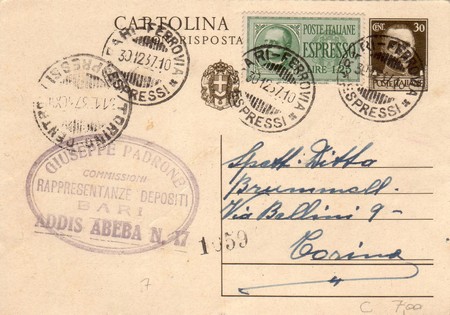 CARTOLINA
RISPOSTA
POSTE ITALIANE
ESPRESSO
LIRE 1,25
CENT 30
POSTE ITALIANE
BARI-FERROVIA
30.12.37.10
(ESPRESSI)
BARI-FERROVIA
30.12.37.10
(ESPRESSI)
TORINO
ESPRESSI
GIUSEPPE PADRONE
COMMISSIONI
RAPPRESENTANZE DEPOSITI
BARI
ADDIS ABEBA N. 17
1059
Spett. Ditta
Brummell
Via Bellini 9-
Torino
7
C 7,00